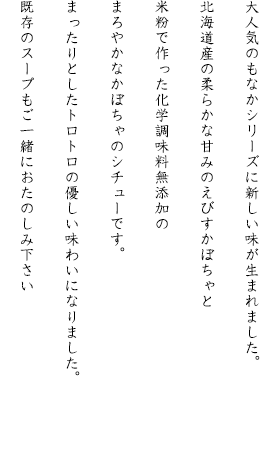 大人気のもなかシリーズに新しい味が生まれました。
北海道産の柔らかな甘みのえびすかぼちゃと
米粉で作った化学調味料無添加の
まろやかなかぼちゃのシチューです。
まったりとしたトロトロの優しい味わいになりました。
既存のスープもご一緒におたのしみ下さい